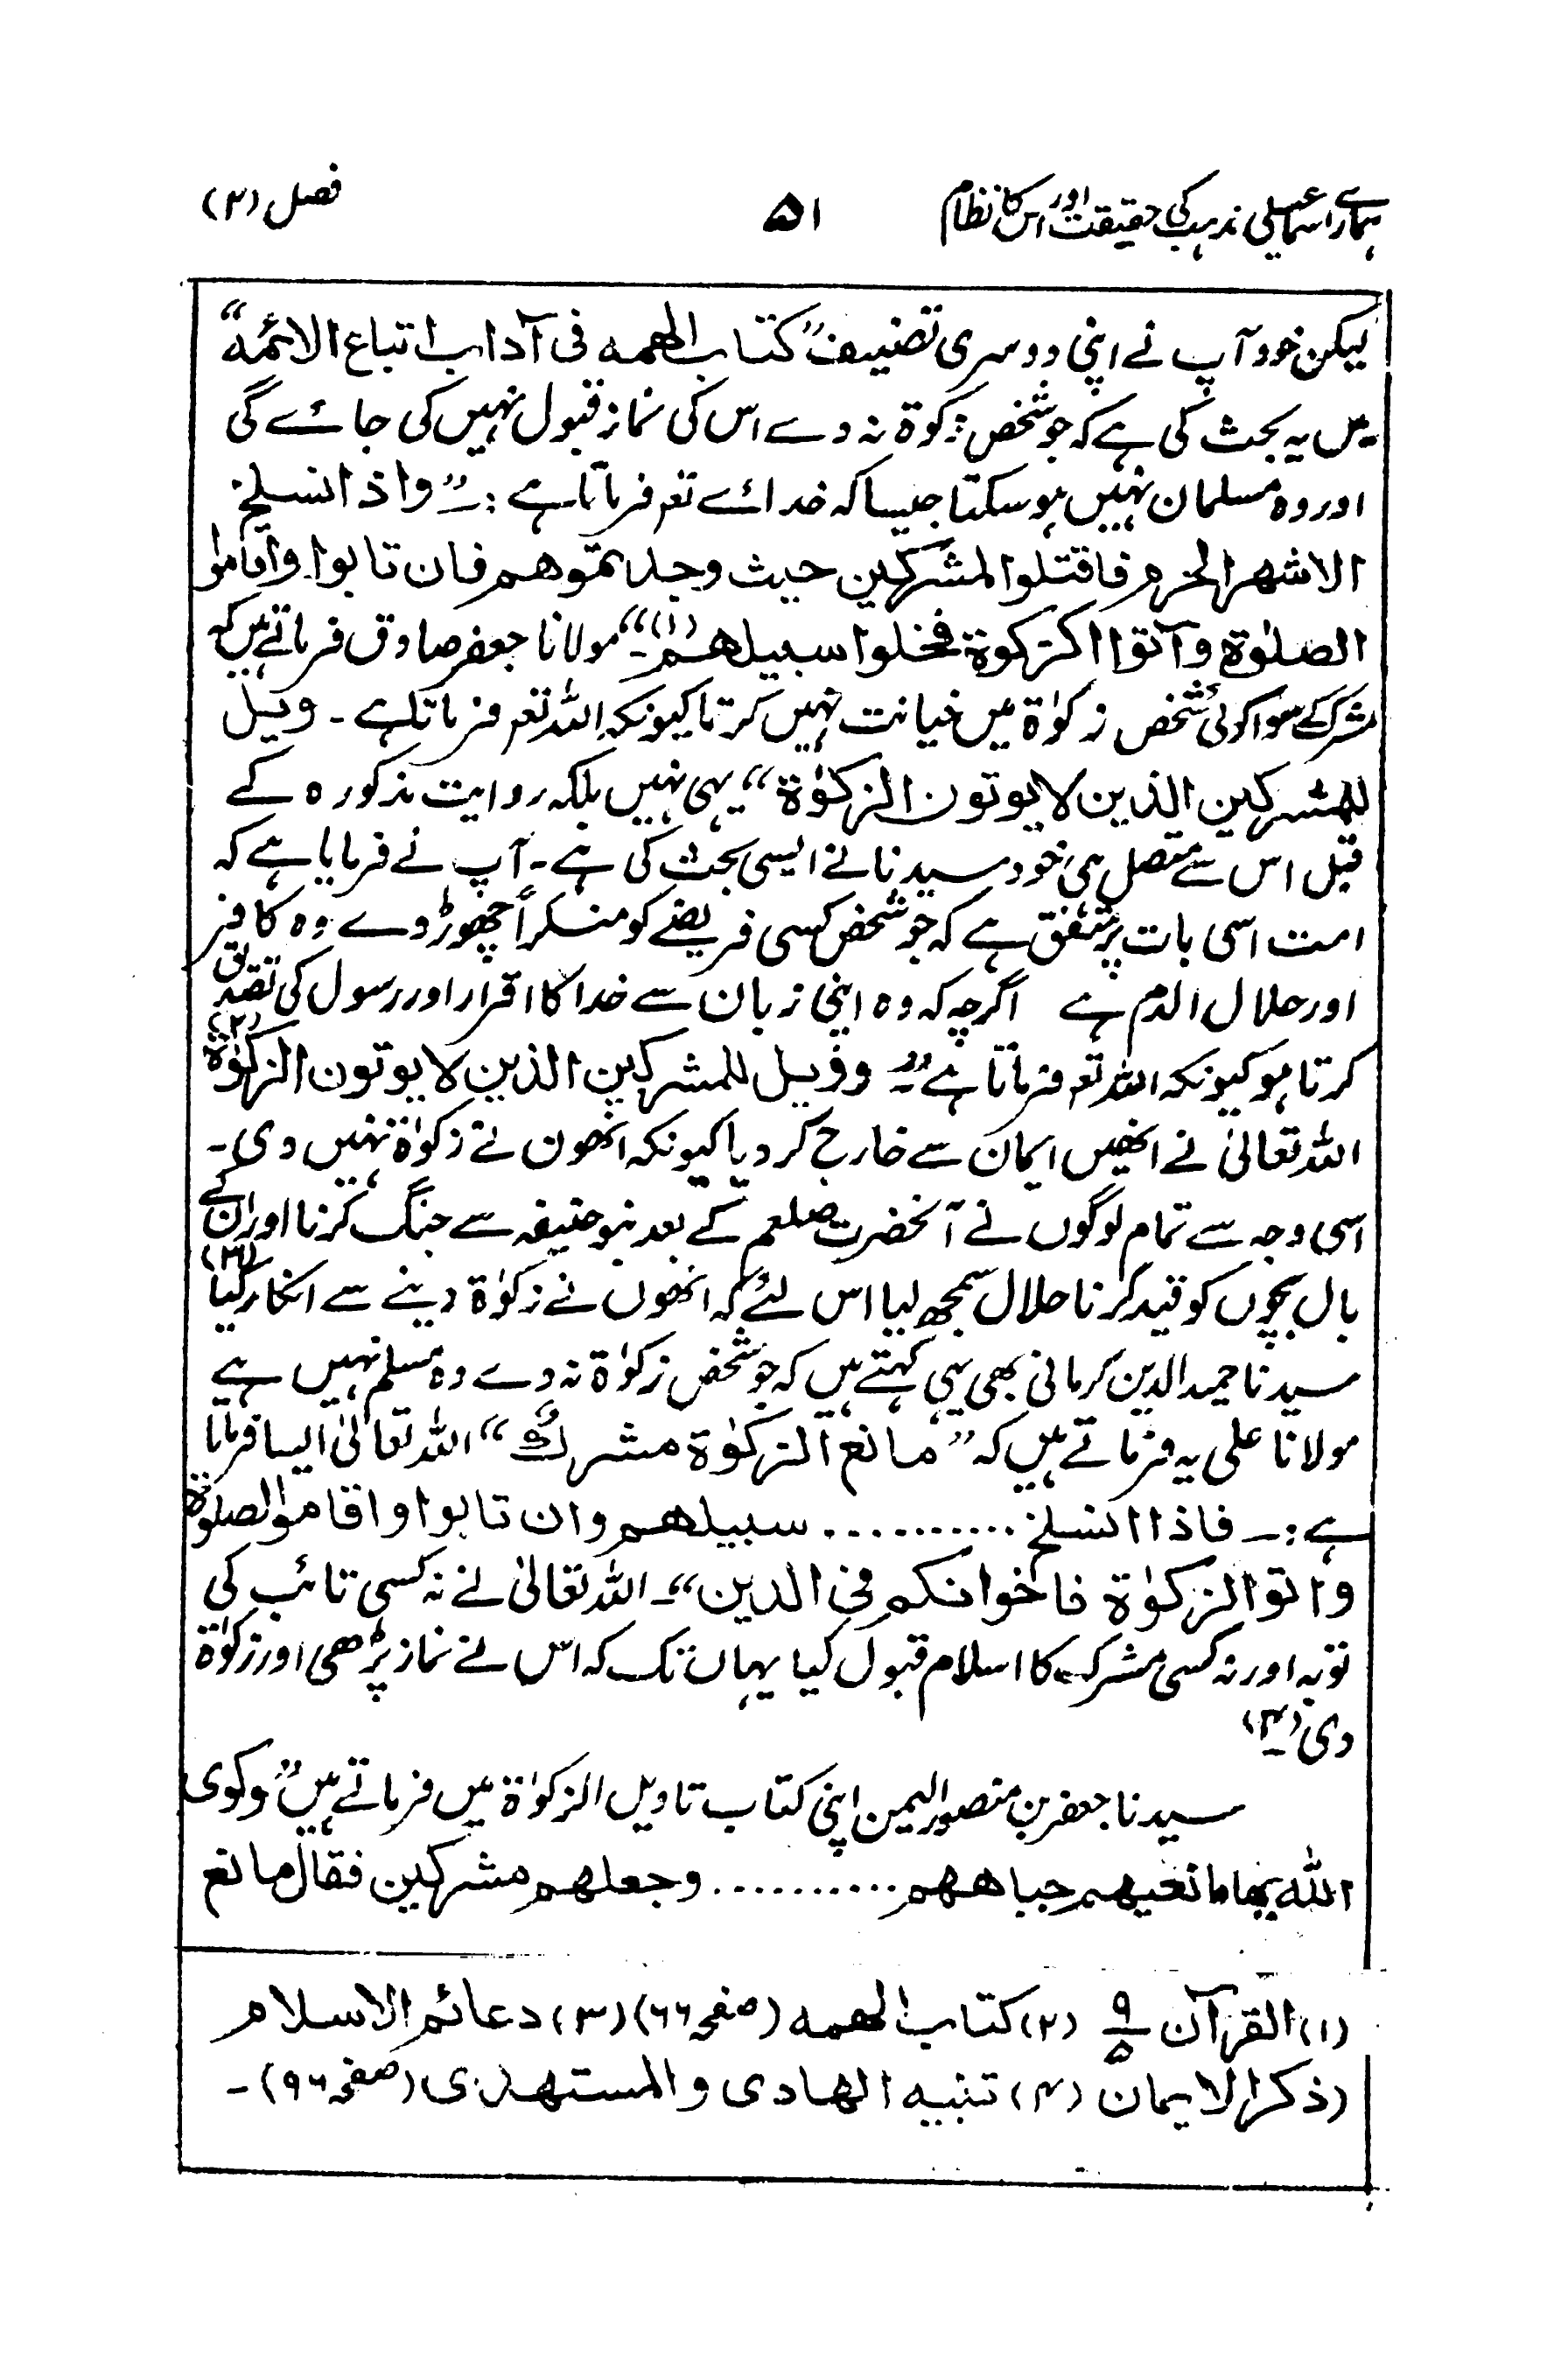 ہمارے اسماعیلی مذہب کی حقیقت اور اس کا نظام ۵۱ فصل (۲)
لیکن خود آپ نے اپنی دوسری تصنیف "کتاب الھمہ فی آداب اتباع الائمہ"
میں یہ بحث کی ہے کہ جو شخص زکوۃ نہ دے اس کی نماز قبول نہیں کی جائے گی
اور وہ مسلمان نہیں ہوسکتا جیسا کہ خدائے تعہ فرماتا ہے :۔ "واذ انسلخ
الاشھر الحرم فاقتلوا المشرکین حیث وجدتموھم فان تابوا واقاموا
الصلوٰۃ وآتوا الزکوۃ فخلوا سبیلھم۔(۱)" مولانا جعفر صادق فرماتے ہیں کہ
مشرک کے سوا کوئی شخص زکوٰۃ میں خیانت نہیں کرتا کیونکہ اللہ تعہ فرماتا ہے ۔ ویل
للمشرکین الذین لا یوتون الزکوٰۃ" یہی نہیں بلکہ روایت مذکورہ کے
قبل اس سے متصل ہی خود سیدنا نے ایسی بحث کی ہے ۔ آپ نے فرمایا ہے کہ
امت اسی بات پر متفق ہے کہ جو شخص کسی فریضے کو منکراً چھوڑ دے وہ کافر
اور حلال الدم ہے اگرچہ کہ وہ اپنی زبان سے خدا کا اقرار اور رسول کی تصدیق
کرتا ہو کیونکہ اللہ تعہ فرماتا ہے:۔ "وویل للمشرکین الذین لا یوتون الزکوٰۃ(۲)
اللہ تعالیٰ نے انھیں ایمان سے خارج کر دیا کیونکہ انھون نے زکوٰۃ نہیں دی ۔
اسی وجہ سے تمام لوگوں نے آنحضرت صلعم کے بعد بنو حنیفہ سے جنگ کرنا اور ان کے
بال بچوں کو قید کرنا حلال سمجھ لیا اس لئے کہ انھوں نے زکوٰۃ دینے سے انکار کیا(۳)
سیدنا حمید الدین کرمانی بھی یہی کہتے ہیں کہ جو شخص زکوٰۃ نہ دے وہ مسلم نہیں ہے
مولانا علی یہ فرماتے ہیں کہ "مانع الزکوٰۃ مشرکٌ" اللہ تعالیٰ ایسا فرماتا
ہے :۔ فاذا انسلخ ........... سبیلھم وان تابوا واقاموا الصلوٰۃ
واتوا الزکوٰۃ فاخوانکم فی الدین"۔ اللہ تعالیٰ نے نہ کسی تائب کی
توبہ اور نہ کسی مشرک کا اسلام قبول کیا یہاں تک کہ اس نے نماز پڑھی اور زکوٰۃ
دی (۴)
سیدنا جعفر بن منصور الیمن اپنی کتاب تاویل الزکوٰۃ میں فرماتے ہیں "وکوی
اللہ بھا مانعیھم جباھھم .......... وجعلھم مشرکین فقال مانع
(۱) القرآن ۹/۵ (۲) کتاب الھمہ (صفحہ ۶۶) (۳) دعائم الاسلام
(ذکر الایمان (۴) تنبیہ الھادی والمستھدی (صفحہ ۹۶) ۔